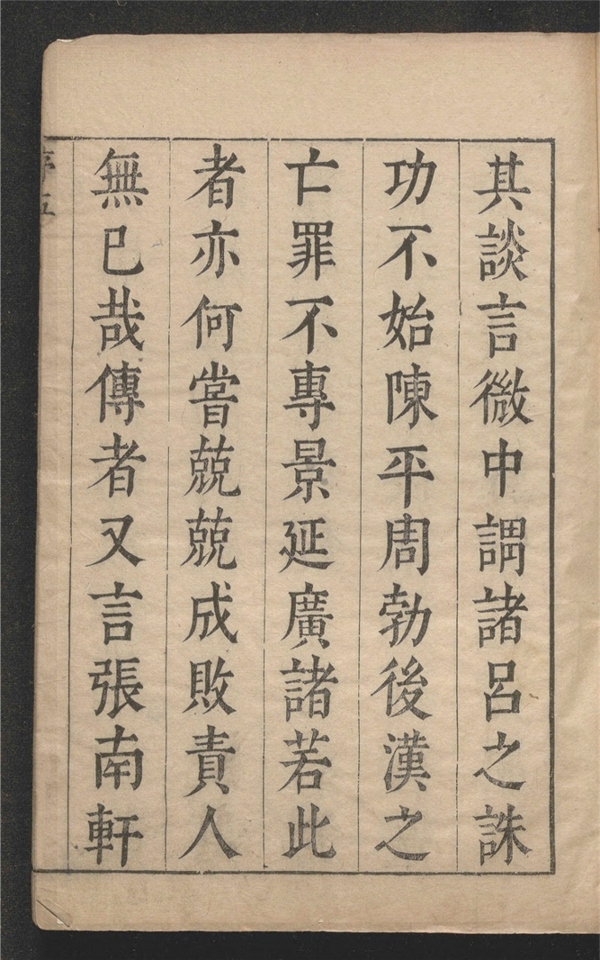 其談言微中謂諸呂之誅
功不始陳平周勃後漢之
亡罪不專景延廣諸若此
者亦何嘗兢兢成敗責人
無已哉傳者又言張南軒
序五